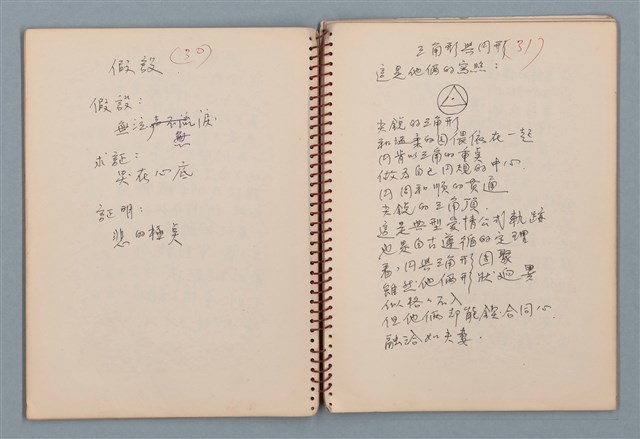 (30)
假設
假設：
無泣聲無流淚
求証：
哭在心底
証明：
悲的極奌
三角形與円形(31)
這是他倆的寫照：
尖銳的三角形
和溫柔的圓偎依在一起
円肯以三角的重奌
做為自己円規的中心
円周和順的貫通
尖銳的三角頂
這是典型愛情公式軌跡
也是自古遵循的定理
看，円與三角形團聚
雖然他倆形狀迥異
似格格不入
但他倆却能鍥合同心
融洽如夫妻．